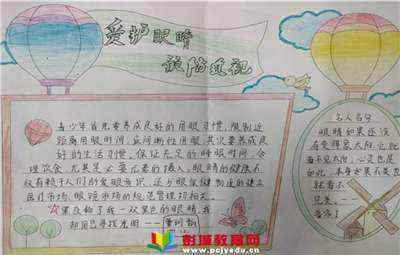 爱护眼睛
预防近视
青少年首先要养成良好的用眼习惯,限制近
距离用眼时间,应间断性用眼,其次要养成良
好的生活习惯,保证充足的睡眠时间,合
理饮食,尤其是必要元素的摄入,眼睛的健康不
仅有赖于人们的爱眼意识,还与眼保健制度的建立
医疗市场、眼镜市场的规范管理均相关。
黑夜给了我一双黑色的眼睛,我
却用它寻找光明——
名人名句
眼睛如果还没
有变得像太阳,它就
看不见太阳,心灵也是
如此,本身如果不美也
就看不
见美。——
普洛丁
彭城教育网
www.pcjyedu.cn